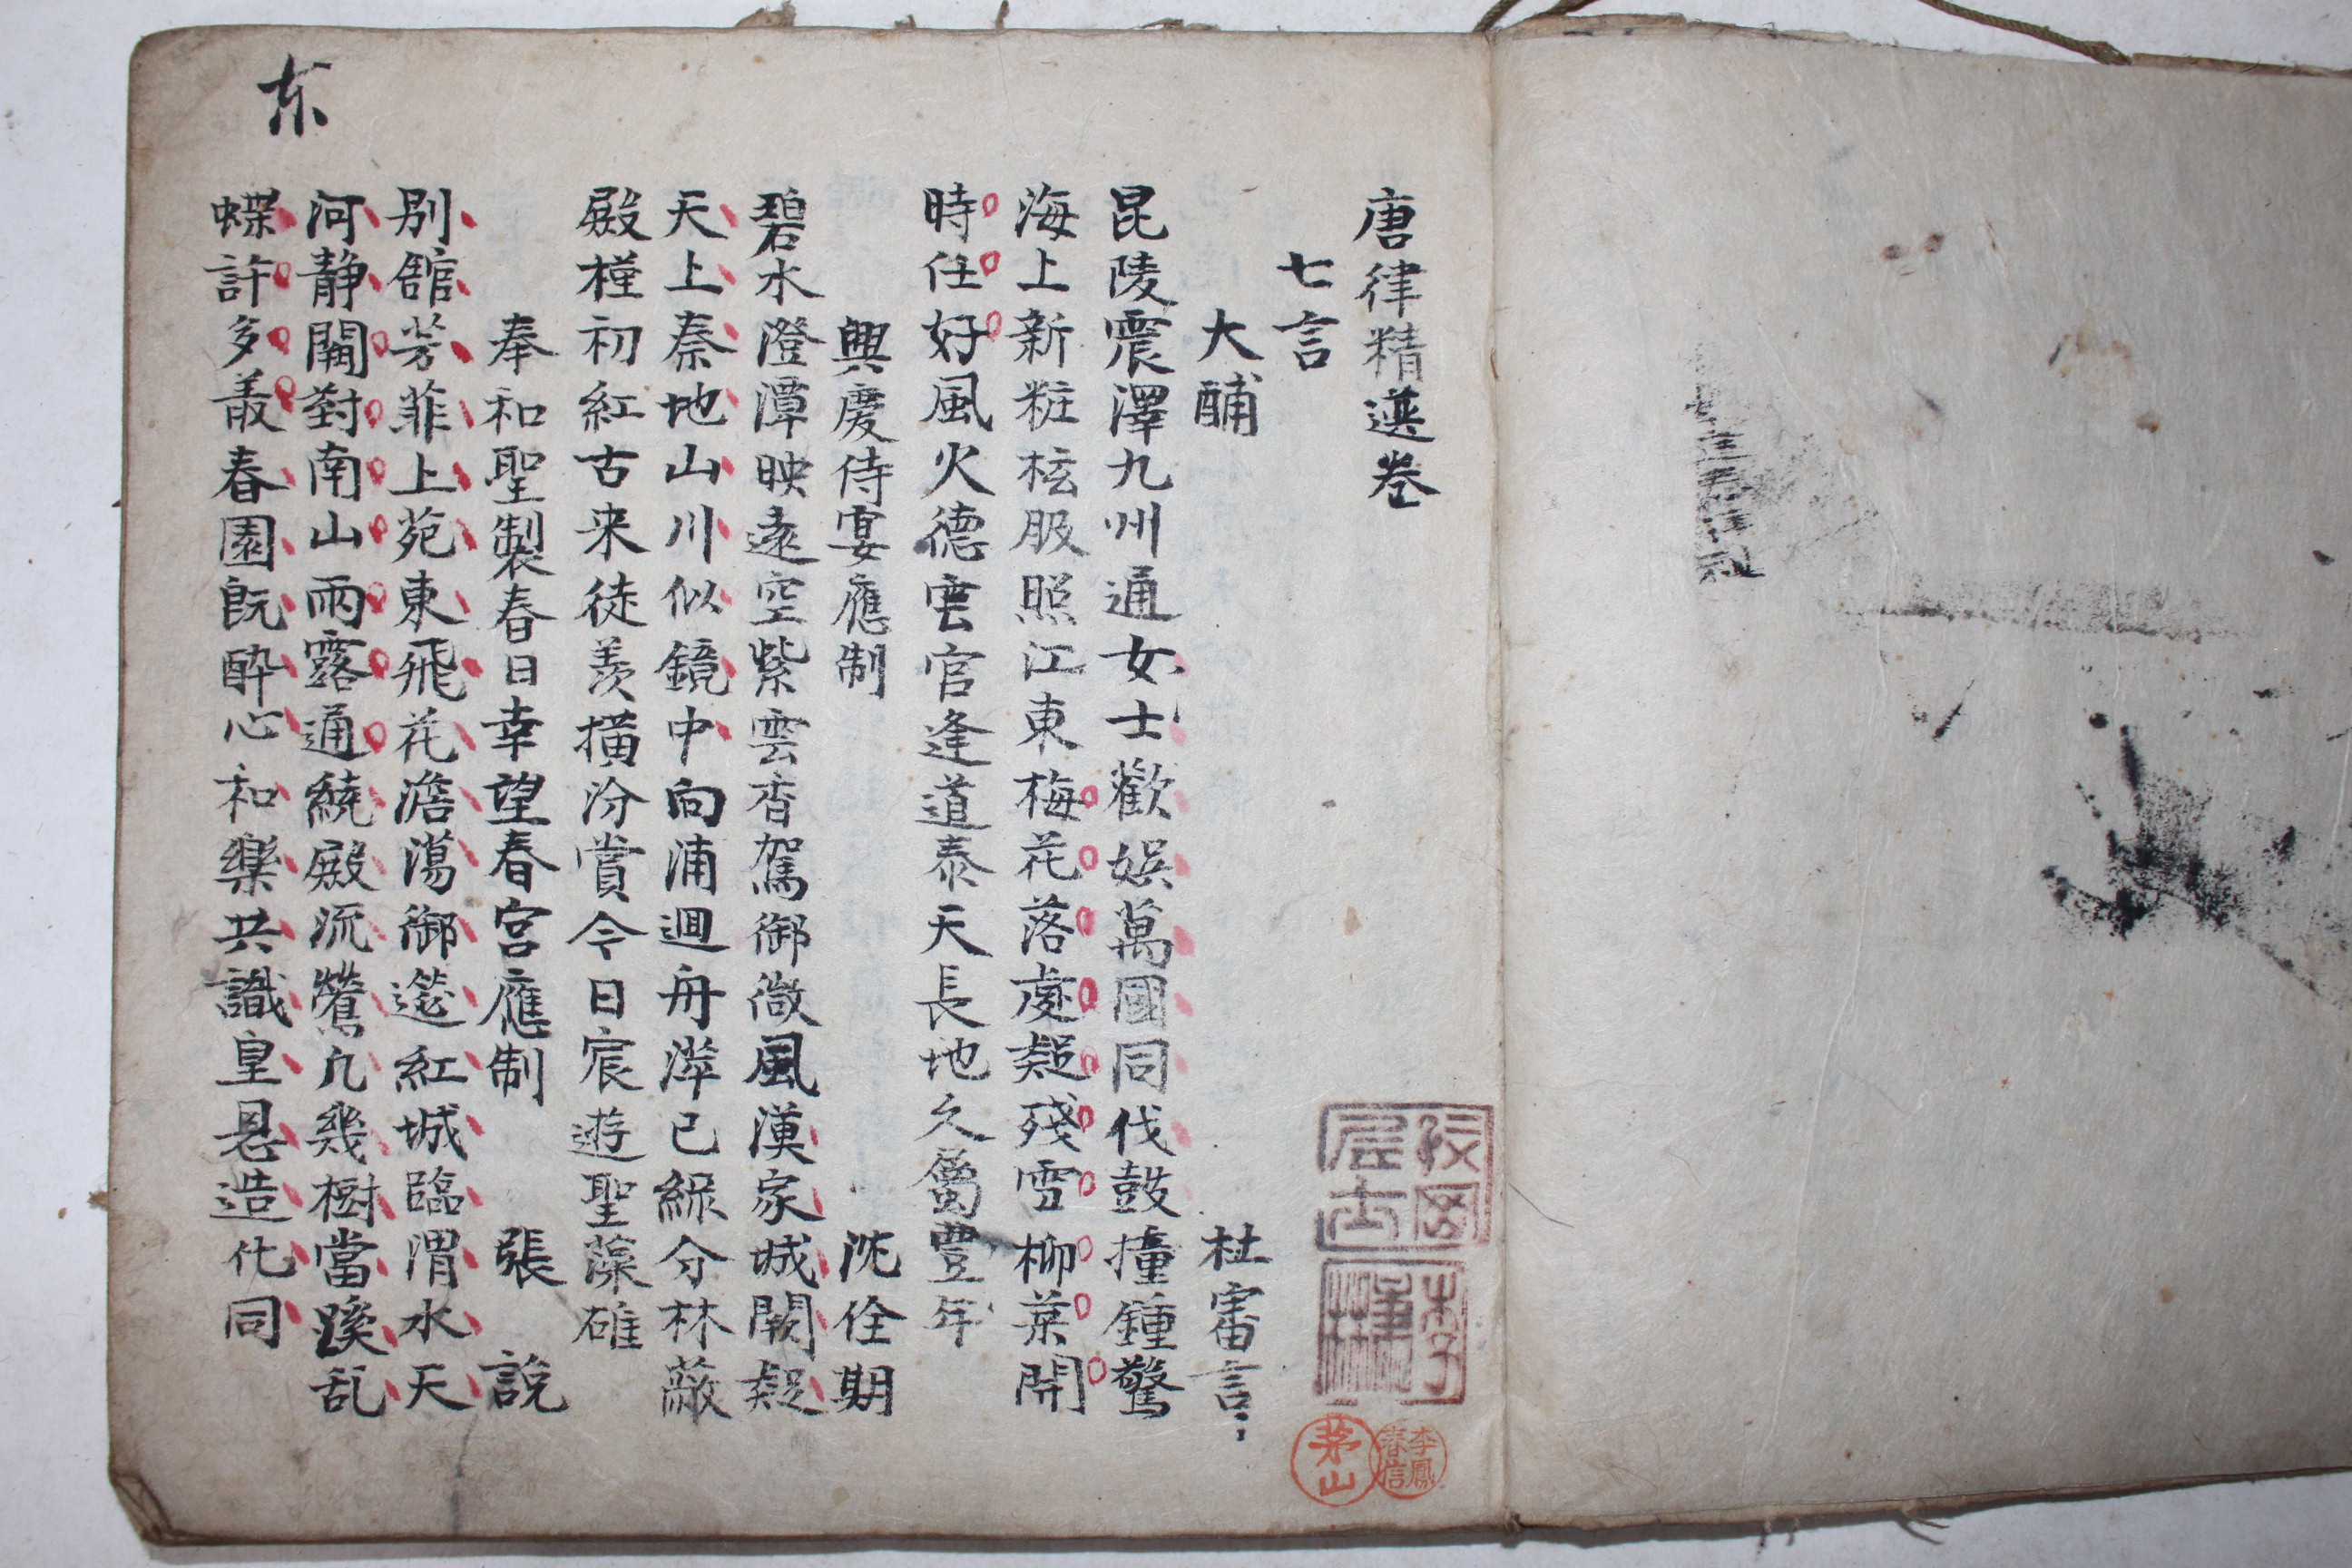 唐律精選卷
七言
大酺 杜審言
昆陵震澤九州通女士歡娛萬國同伐鼓撞鍾驚
海上新粧袨服照江東梅花落處疑殘雪柳葉開
時任好風火德雲官逢道泰天長地久屬豊年
興慶侍宴應制 沈佺期
碧水澄潭映遠空紫雲香駕御微風漢家城闕疑
天上秦地山川似鏡中向浦迴舟萍已綠分林蔽
殿槿初紅古来徒羨橫汾賞今日宸遊聖藻雄
奉和聖製春日幸望春宮應制 張說
別舘芳菲上苑東飛花澹蕩御筵紅城臨渭水天
河静闕對南山雨露通繞殿流鶯凢幾樹當蹊乱
蝶許多叢春園旣醉心和樂共識皇恩造化同
东
居士
李
茅山
李鳳
春信